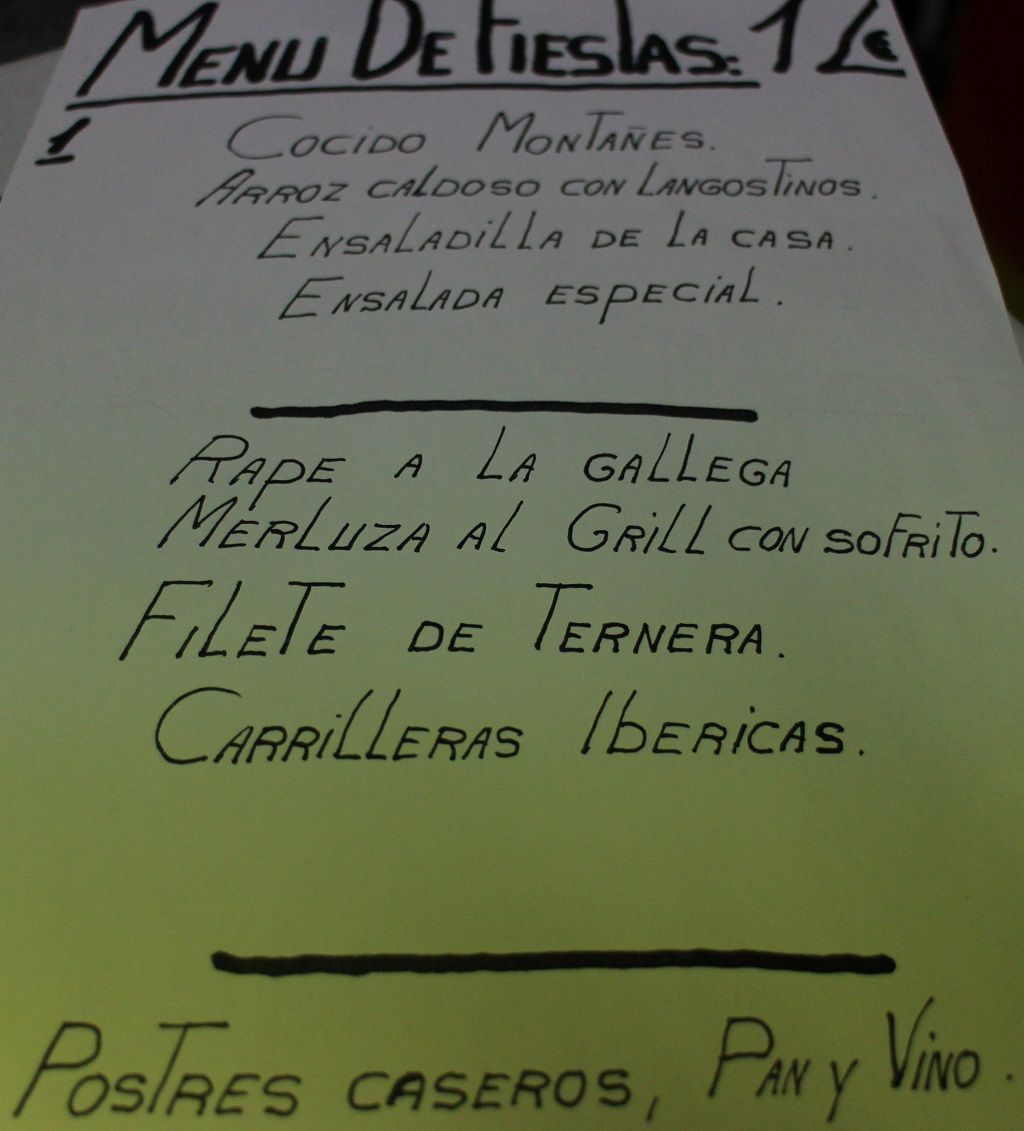 MENU DE FIESTAS:
1 COCIDO MONTAÑES.
ARROZ CALDOSO CON LANGOSTINOS.
ENSALADILLA DE LA CASA.
ENSALADA ESPECIAL.
RAPE A LA GALLEGA
MERLUZA AL GRILL CON SOFRITO.
FILETE DE TERNERA.
CARRILLERAS IBERICAS.
POSTRES CASEROS, PAN Y VINO.